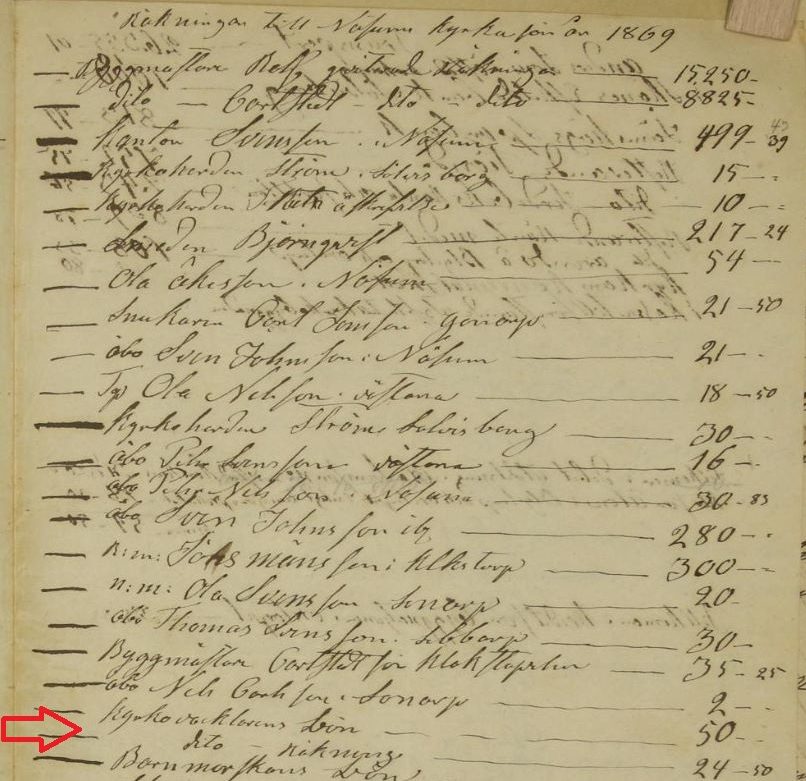 Räkningar till Näsums kyrka för år 1869
Byggmästare Rolf qvitterade räkningar 15250-
dito - Carlstedt - dito - dito 8825-
Kantor Svensson. Näsum 499-39
Kyrkoherden Ström. Sölvisborg 15-
Kyrkoherden 10-
Smeden Björnqvist 217-24
Ola Åkesson. Näsum 54-
Snickaren Carl Jonsson. Gonarp 21-50
åbo Sven Johnsson: Näsum 21-
Ola Nelsson. västana 18-50
Kyrkoherden Ström Solvisborg 30-
åbo Pehr Svensson västana 16-
åbo Pehr Nilsson. Näsum 30-83
åbo Sven Johnsson 280-
n:m: Jöns månsson: Klkstorp 300-
n:m: Ola Svensson Sonarp 20-
åbo Thomas Svensson. Sibbarp 30-
Byggmästare Carlstedt för Klokstapeln 35-25
åbo Nils Carlsson: Sonarp 2-
Kyrkovacktarens Lön 50-
dito - Räkning
Barnmorskans Lön 24-50